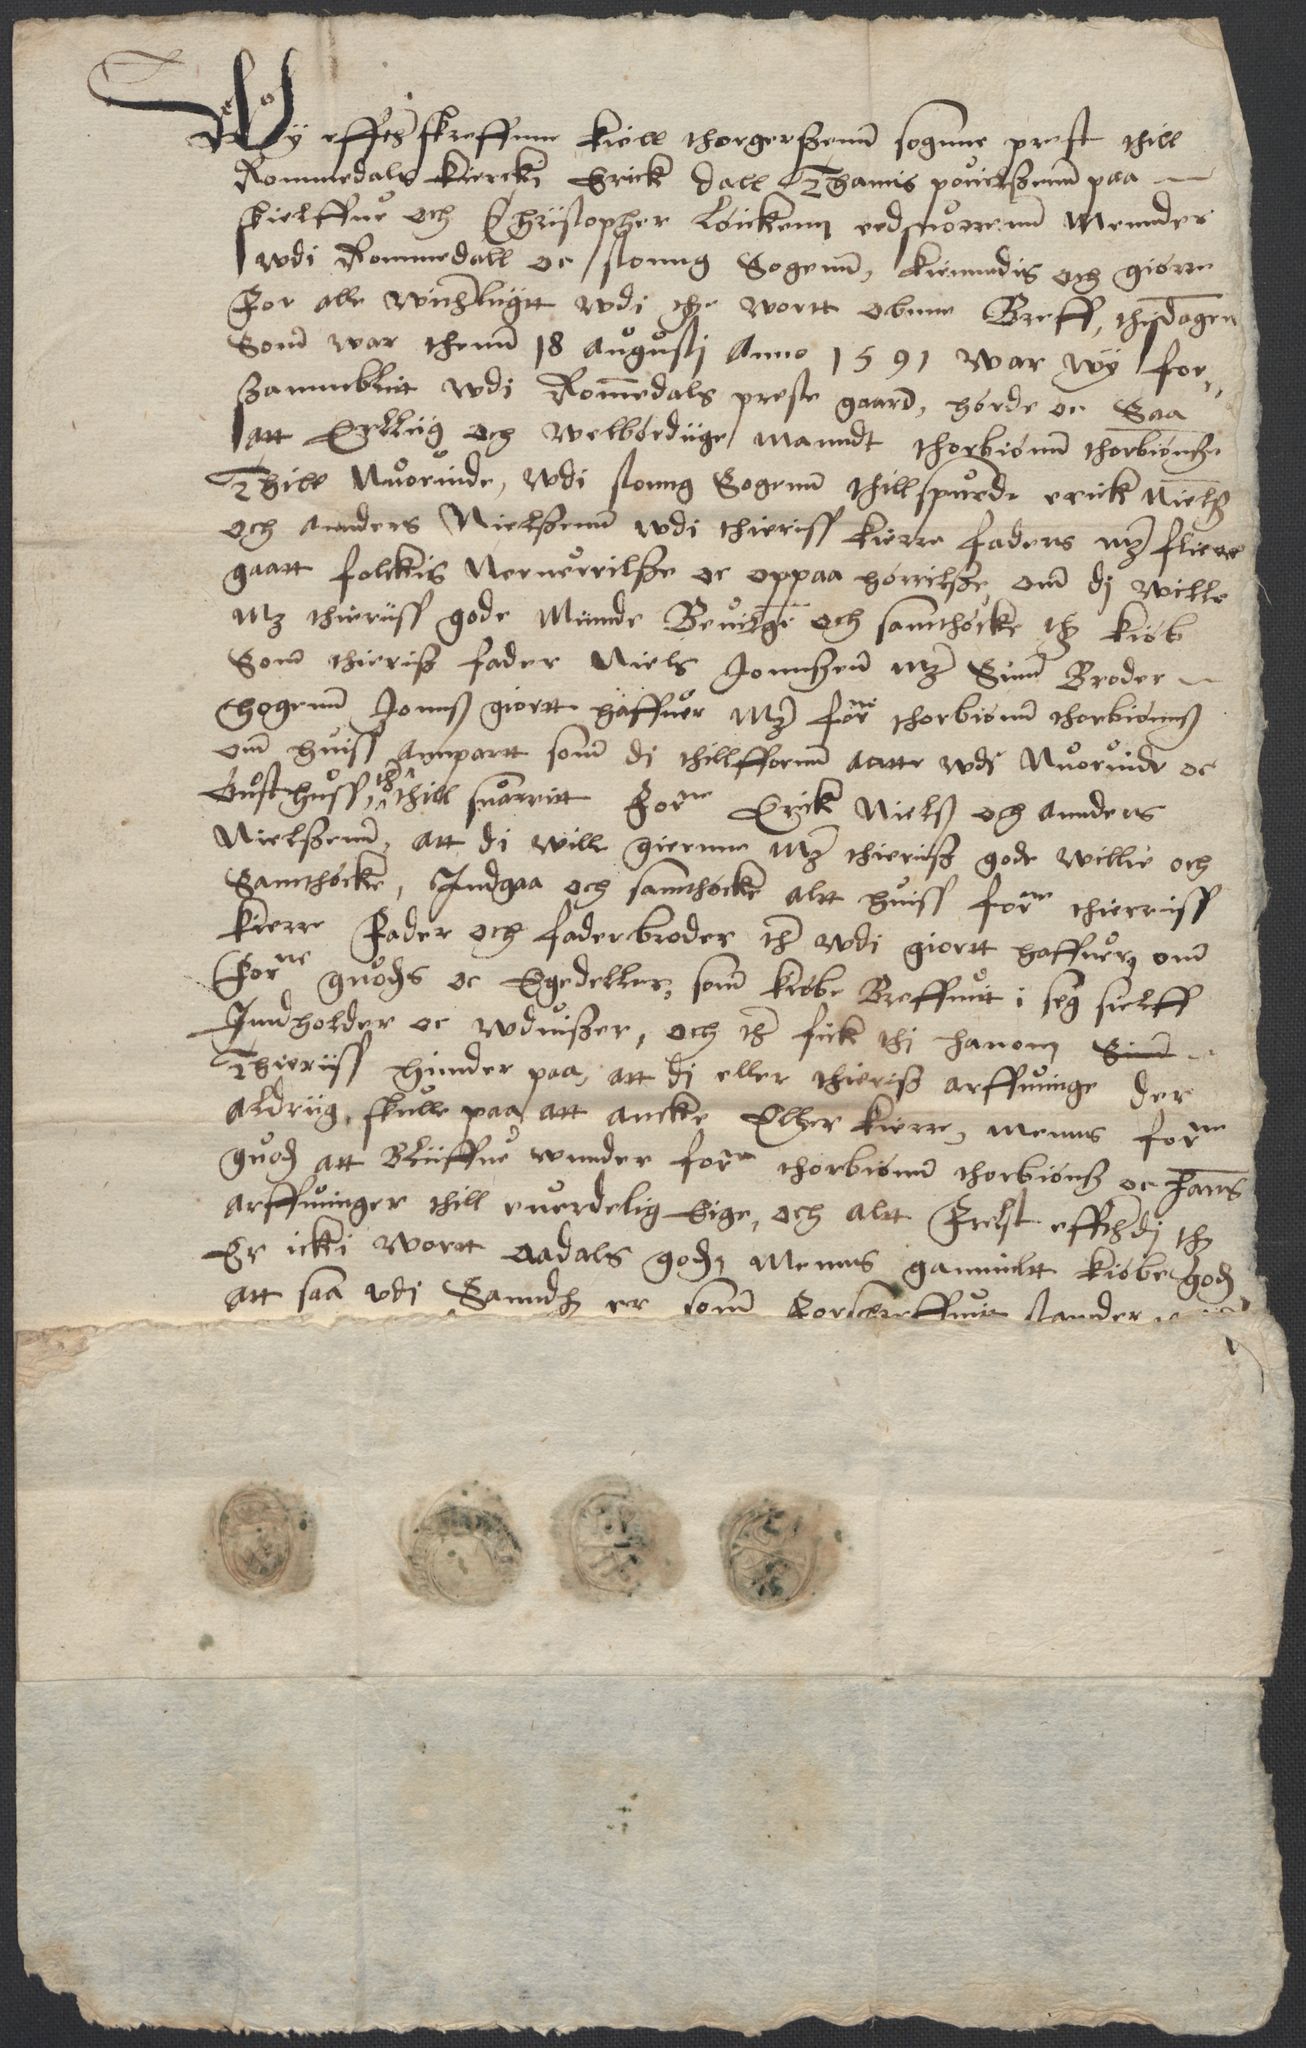 Wy effth skreffne kiell thorgerssenn sognne prest thill
Rommedals kiercki Erick dall Thamis pouelssenn paa
skielffue och Christopher Löicken edsuorrenn Mennder
wdi Rommedall oc stanng Sogenn, kiennedis och giörre
For alle witthligtt wdi the wortt obnne Breff, thisdagen
Som war thenn 18 augustj Anno 1591 war wy for,,
sammblitt wdi Rommedals preste gaard, hörde oc Saa
att Erllig och welbördige manndt thorbiönn thorbiönss
Thill Nuorinde, wdi stanng Sogenn thillspurde erick Nielss
och annders Nielssenn wdi thieriss kierre faders mz fliere
gaatt folckis Neruerrilsse oc oppaa hörrilsse, om di wille
Mz thieriss gode Minde Beuilge och samthöcke thz kiöb
Som thieriss fader Niels Jonnssen mz Sinn Broder
Hogenn Jonnss giortt haffuer Mz forne thorbiönn thorbiönnss
om huiss annpartt som di thillfforenn aatte wdi Nuoruide oc
Lusthuss, th thill suarritt Forne Erick Nielss och annders
Nielssenn, att di will gierenne Mz thieriss gode willie och
Samthöcke, Indgaa och samthöcke altt huiss forne thierriss
kierre Fader och faderbroder th wdi giortt haffuer, om
Forne guods oc Egedeller, som kiöbe Breffuit i seg sielff
Inndholder oc wduisser, och th fick thi hanom Sinn
Thieriss hinder paa, att di eller thieriss arffuinge der
aldrig skulle paa att ancke Eller kierre, menns forne
guods att Bliffue wnnder forne thorbiönn thorbiönss oc hans
arffuinger thill euerdelig Eige, och altt Frelst effthdj thz
Er icki wortt aadals gods Menns gammiltt kiöbe gods
att saa vdi Sanndh er som Forschreffuit stander